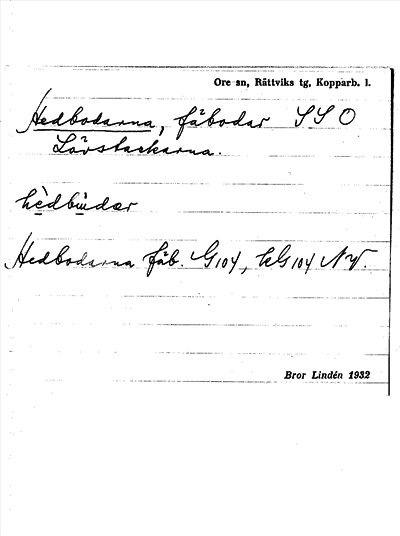 Ore sn, Rättviks tg, Kopparb. l.
Hedbodarna, fäbodar SSO
Lövstackarna.
hèdbùdar
Hedbodarna fäb. G104, kG104 NV.
Bror Lindén 1932